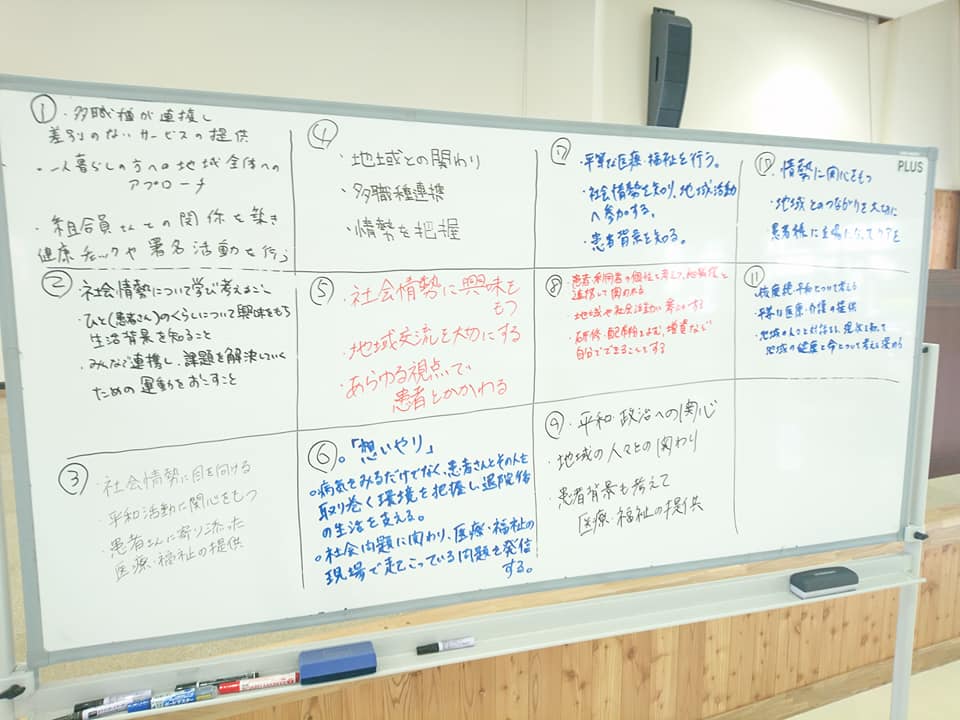 ① ・多職種が連携し
差別のないサービスの提供
・一人暮らしの方への地域全体への
アプローチ
・組合員さんとの関係を築き
健康チェックや署名活動を行う
② ・社会情勢について学び考えること
・ひと(患者さん)のくらしについて興味をもち
生活背景を知ること
・みんなで連携し、課題を解決していく
ための運動をおこすこと
③ ・社会情勢に目を向ける
・平和活動に関心をもつ
・患者さんに寄り添った
医療・福祉の提供
④
・地域との関わり
・多職種連携
・情勢を把握
⑤ ・社会情勢に興味を
もつ
・地域交流を大切にする
・あらゆる視点で
患者とかかわる
⑥ 。「想いやり」
○病気をみるだけでなく、患者さんとその人を
取り巻く環境を把握し退院後
の生活を支える。
○社会問題に関わり、医療・福祉の
現場で起こっている問題を発信
する。
⑦ ・平等な医療・福祉を行う。
・社会情勢を知り、地域活動
へ参加する。
・患者背景を知る。
⑧ ・患者・利用者の個性を考えて、他職種と
連携して関わる
・地域や社会活動に参加する
・研修・配布物を読む、増資など
自分でできることをする
⑨ ・平和・政治への関心
・地域の人々との関わり
・患者背景も考えて
医療・福祉の提供
PLUS
⑩ ・情勢に関心をもつ
・地域とのつながりを大切に
・患者様に立場になってケアを
⑪ ・核廃絶・平和について考える
・平等な医療・介護の提供
・地域の人々と対話をし、現状を知って
地域の健康と命について考えを深める